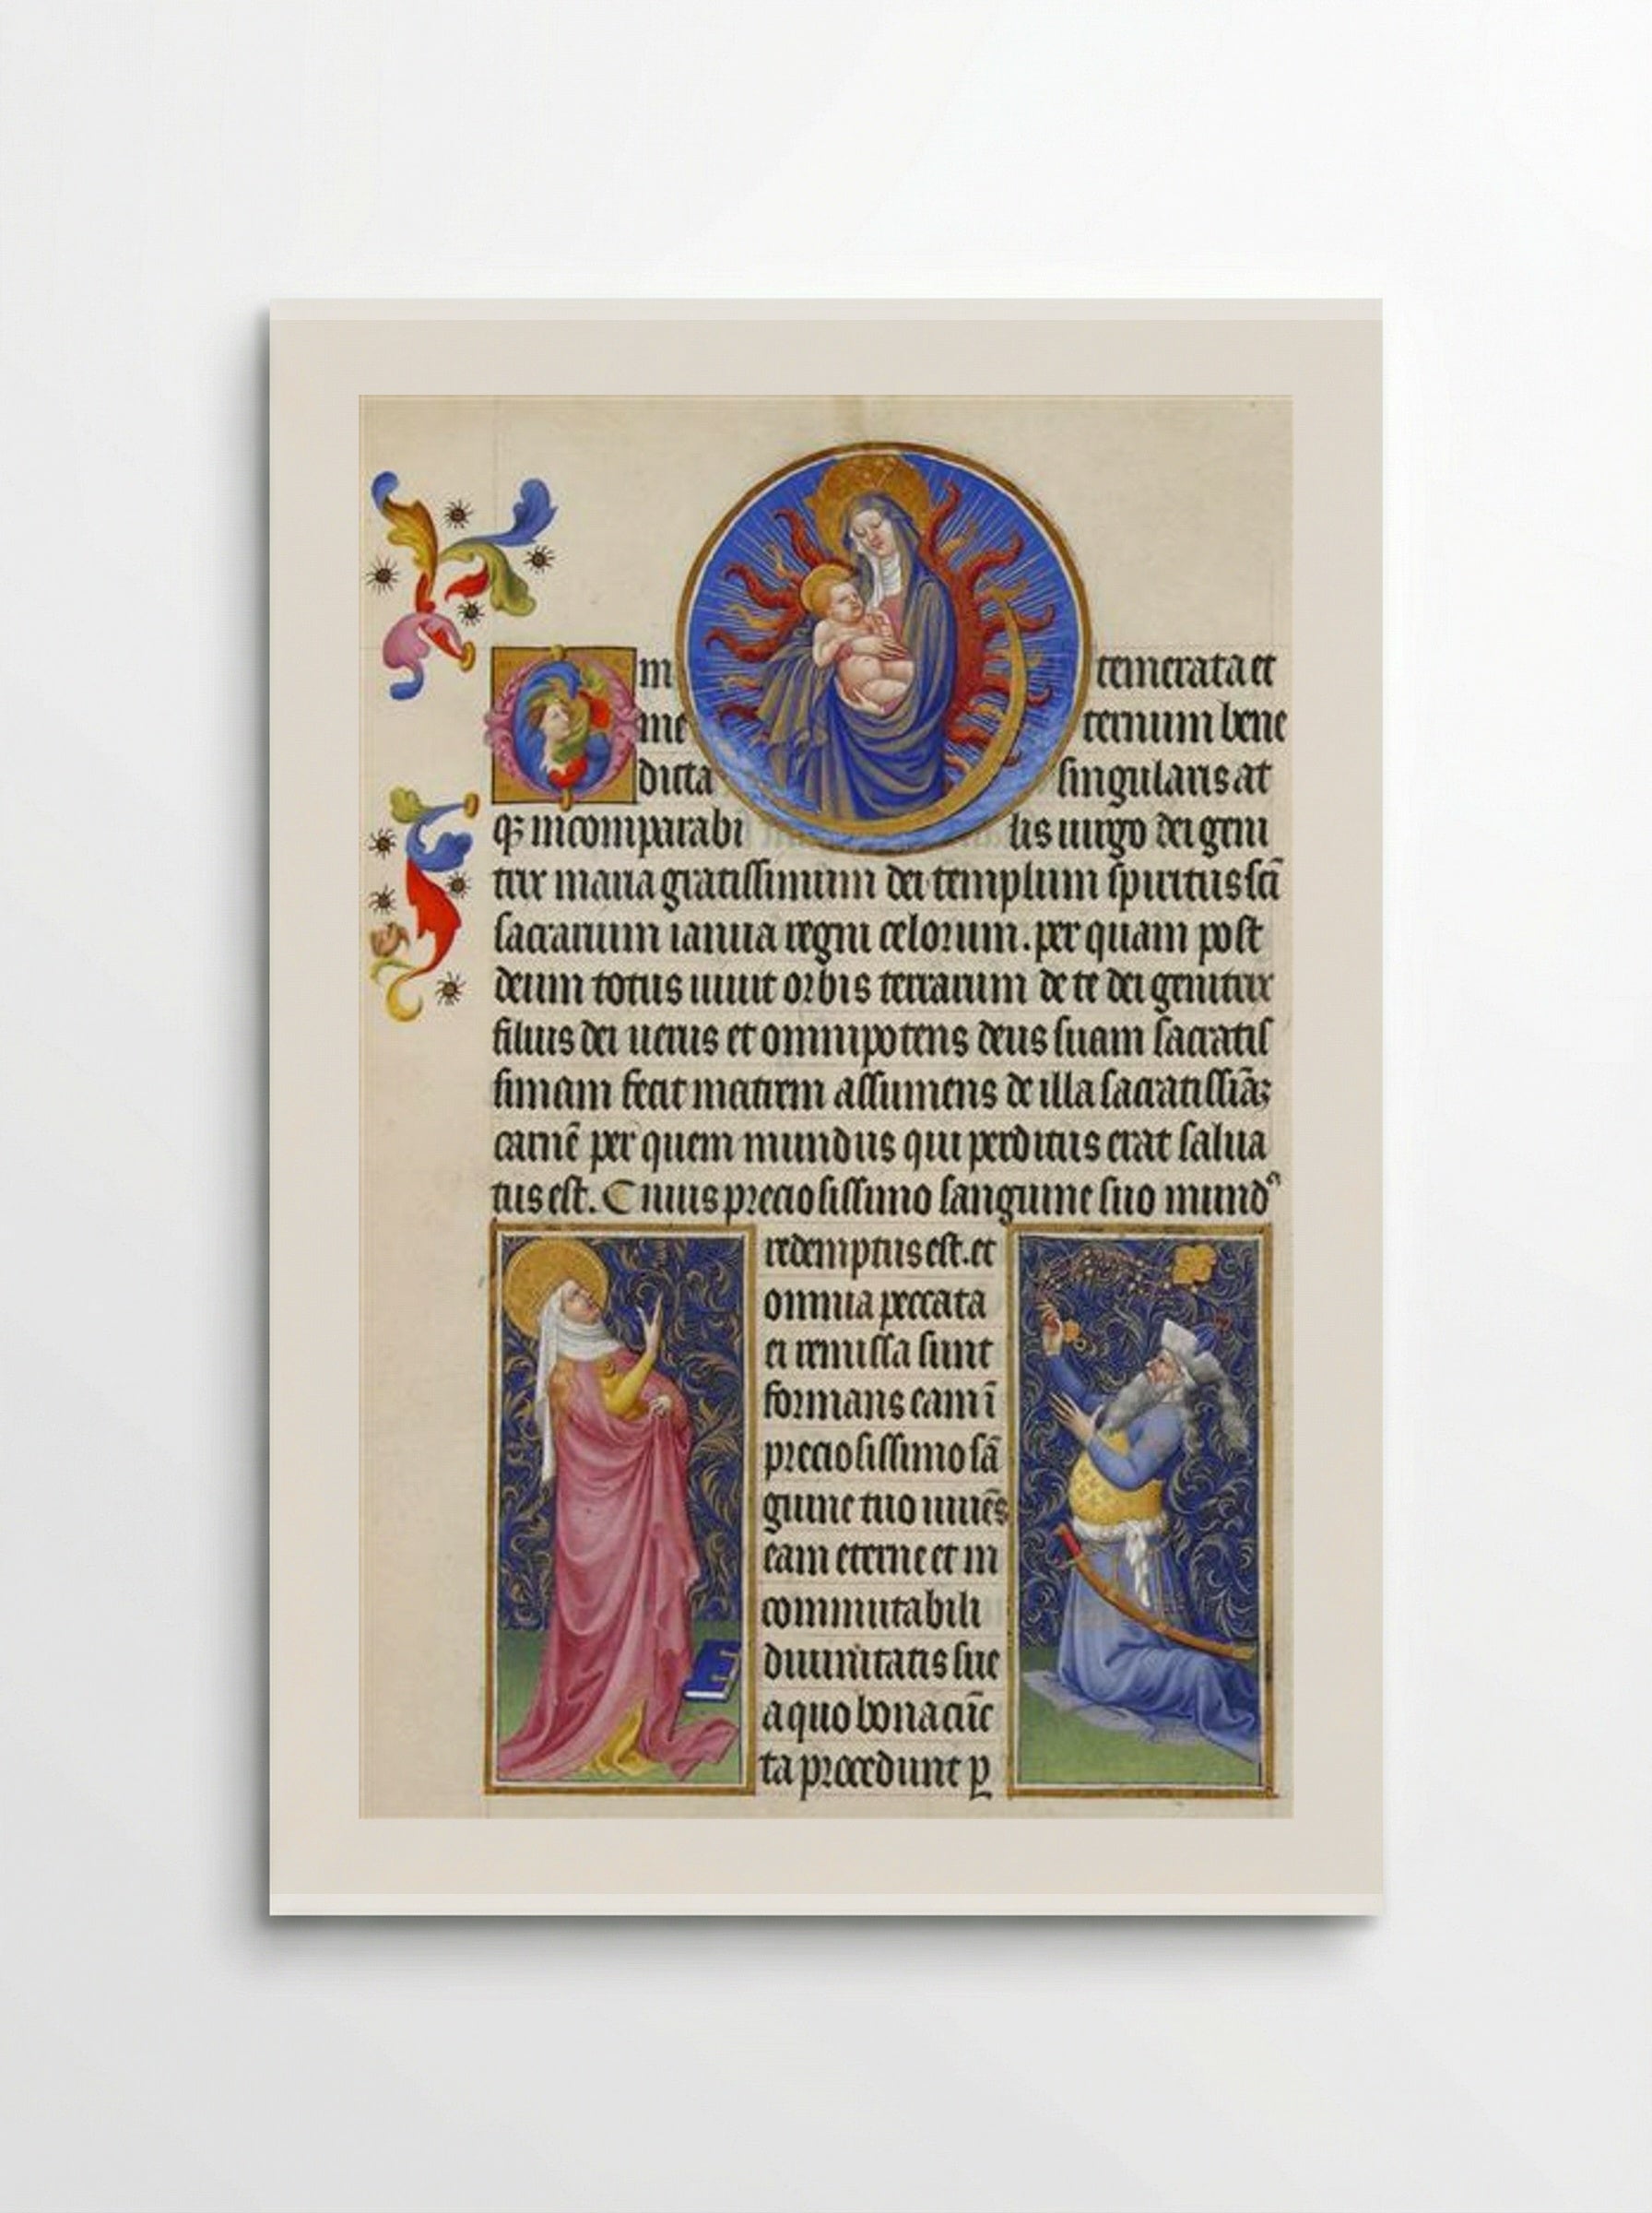 O in temerata et
in e ternum bene
dicta singularis at
qꝫ incomparabi lis uirgo dei geni
trix maria gratissimum dei templum spiritus scī
sacrarium ianua regni celorum. per quam post
deum totus uiuit orbis terrarum de te dei genitrix
filius dei uerus et omnipotens deus suam sacratis
simam fecit matrem assumens de illa sacratissiāꝫ
carnē per quem mundus qui perditus erat salua
tus est. Cuius preciosissimo sanguine suo mundꝰ
redemptus est. et
omnia peccata
ei remissa sunt
formans eam ī
preciosissimo sā
guine tuo uniēs
eam eterne et in
commutabili
diuinitatis sue
a quo bona cūc
ta procedunt ꝑ